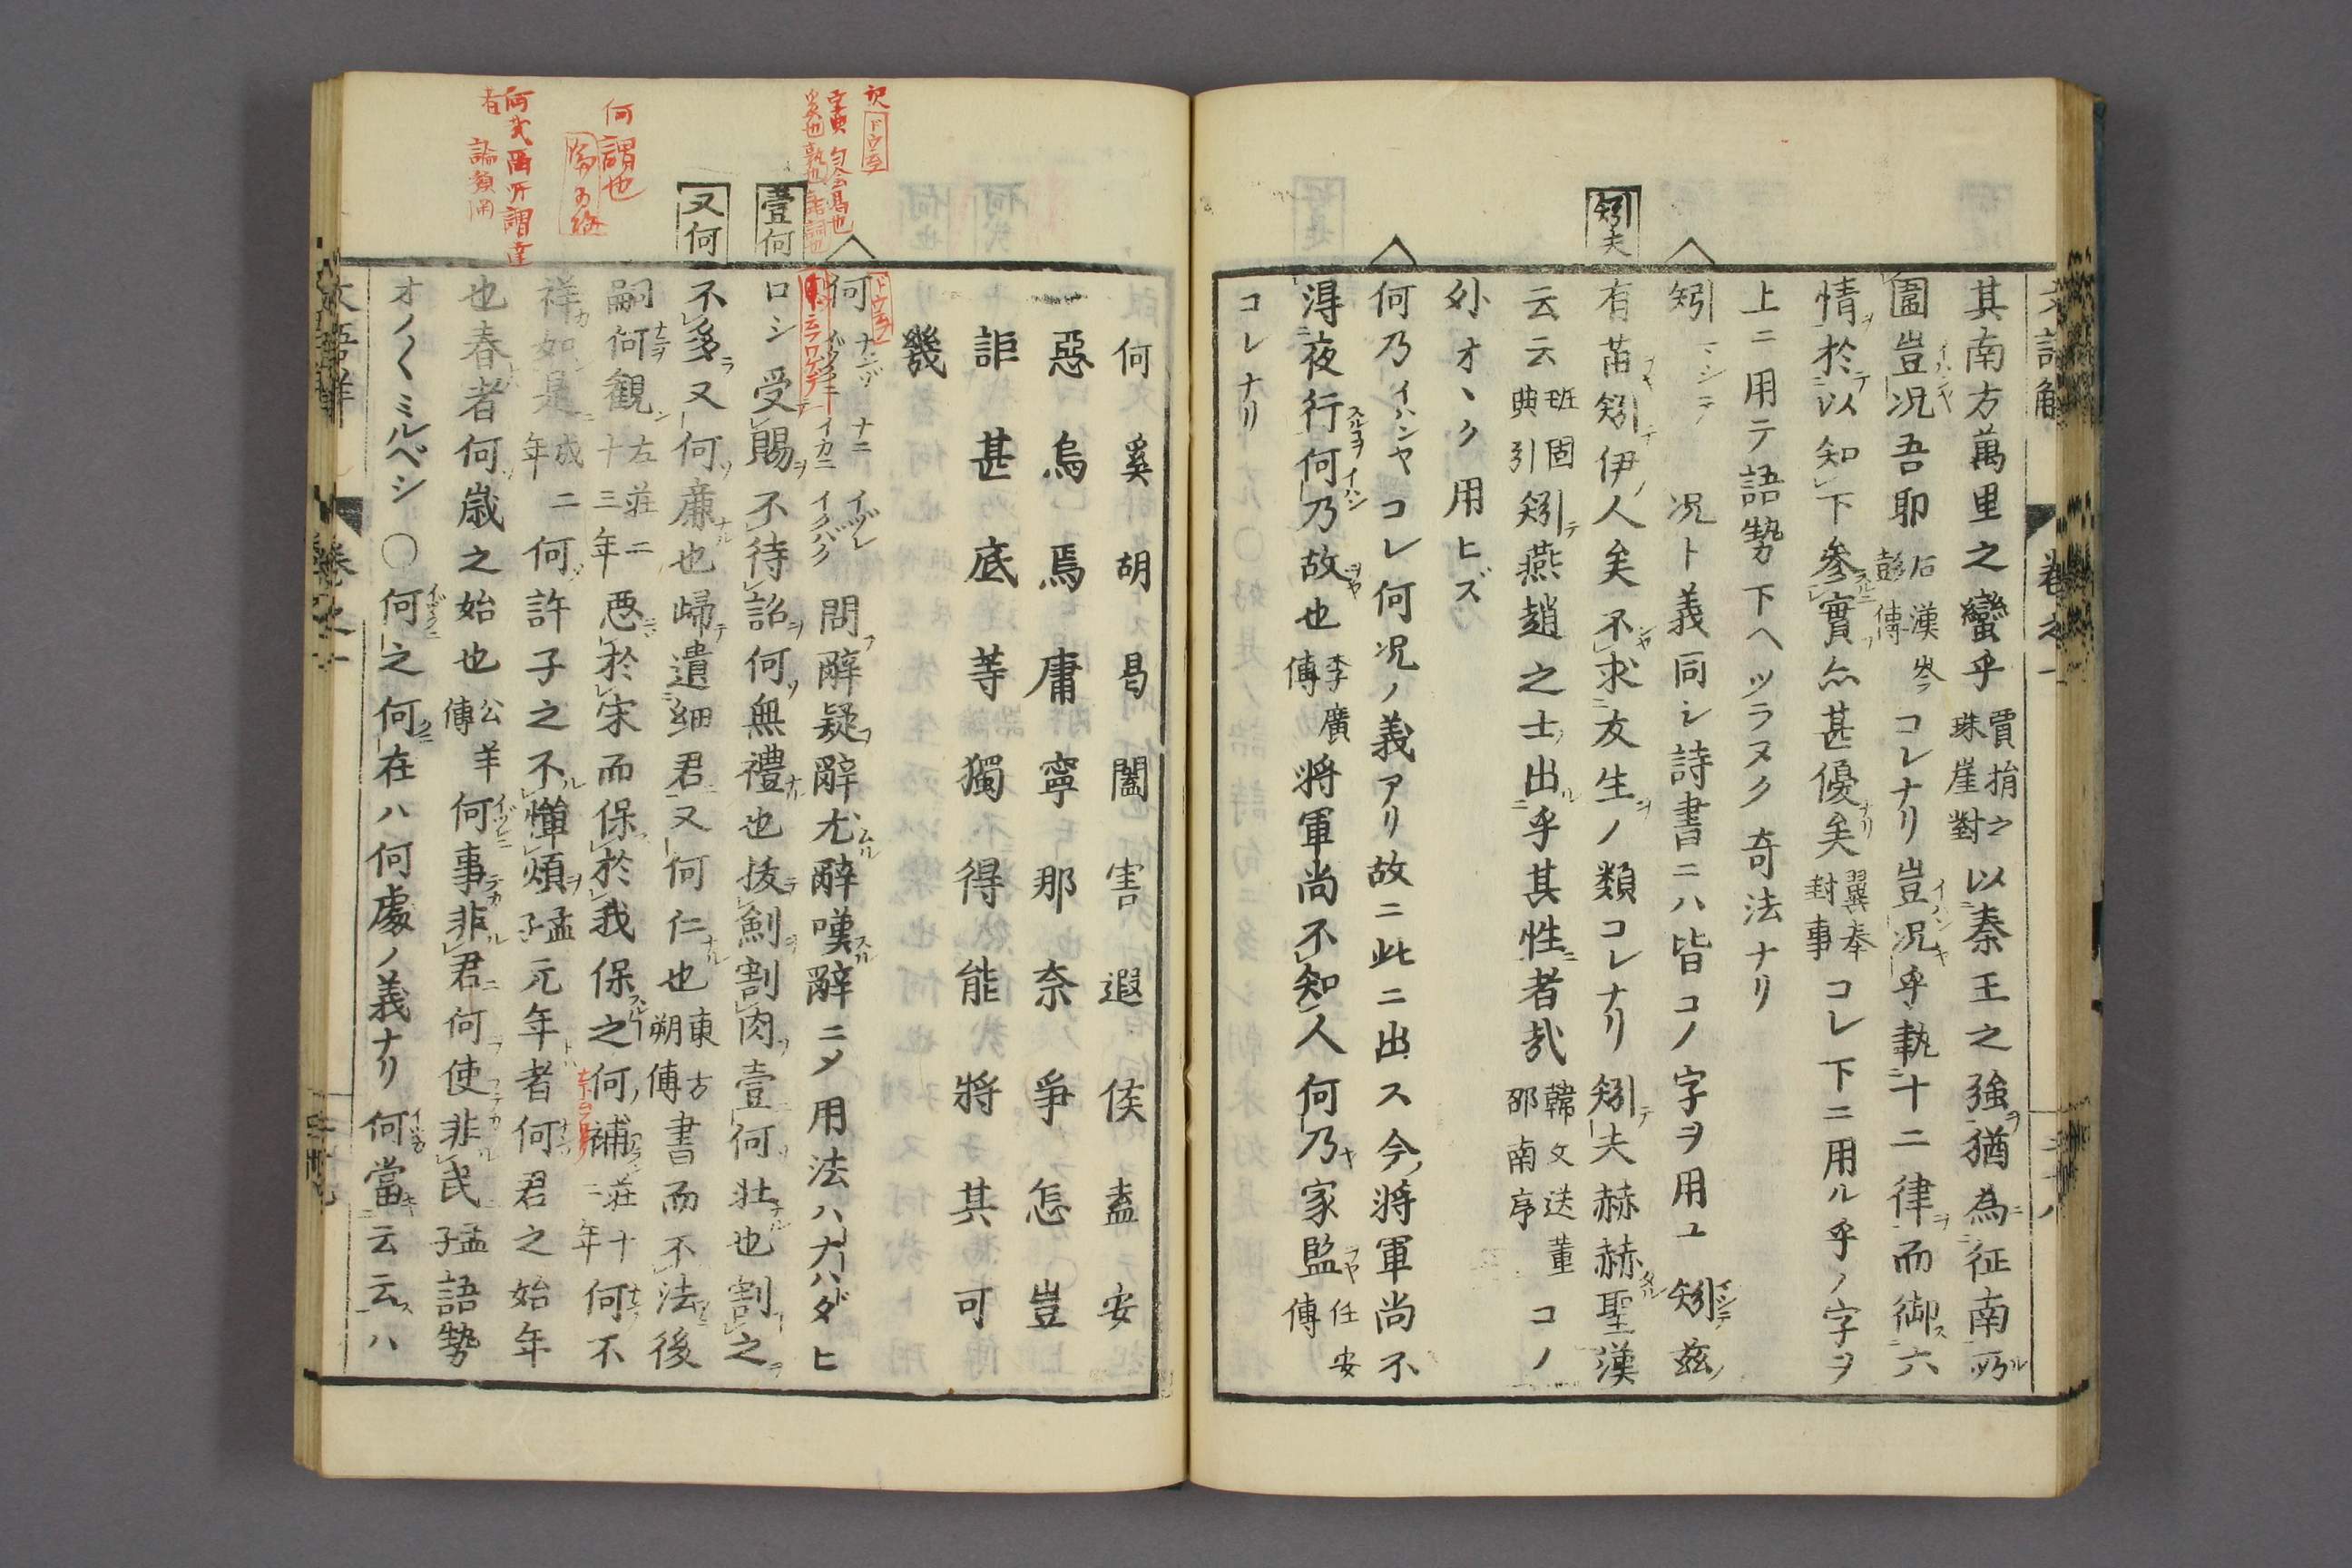 矧夫
其南方萬里之蠻乎 賈捐之珠崖對 以秦王之強猶為征南所
圄豈况吾耶 后漢岑彭傳 コレナリ豈况乎執十二律而御六
情於以知下參實亦甚優矣 翼奉封事 コレ下ニ用ル乎ノ字ヲ
上ニ用テ語勢下ヘツラヌク奇法ナリ
矧 况ト義同シ詩書ニハ皆コノ字ヲ用ユ矧茲
有苗矧伊人矣不求友生ノ類コレナリ矧夫赫赫聖漢
云云 班固典引 矧燕趙之士出乎其性者哉 韓文送董邵南序 コノ
外オヽク用ヒズ
何乃 イハンヤコレ何况ノ義アリ故ニ此ニ出ス今將軍尚不
得夜行何乃故也 李廣傳 將軍尚不知人何乃家監 任安傳
コレナリ
何奚胡曷闔害遐侯盍安
惡烏焉庸寧那奈爭怎豈
詎甚底等獨得能將其可
幾
壹何
又何
何謂也
何 ナンゾ ナニ イヅレ イヅクニ イカニ イクバク 問辭疑辭尤辭嘆辭ニメ用法ハナハダヒ
ロシ受賜不待詔何無禮也拔劍割肉壹何壯也割之
不多又何廉也歸遺細君又何仁也 東方朔傳 書而不法後
嗣何觀 左莊二十三年 惡於宋而保於我保之何補 莊十二年 何不
祥如是 成二年 何許子之不憚煩 孟子 元年者何君之始年
也春者何歲之始也 公羊傳 何事非君何使非民 孟子 語勢
オノ〱ミルベシ〇何之何在ハ何處ノ義ナリ何當云云ハ